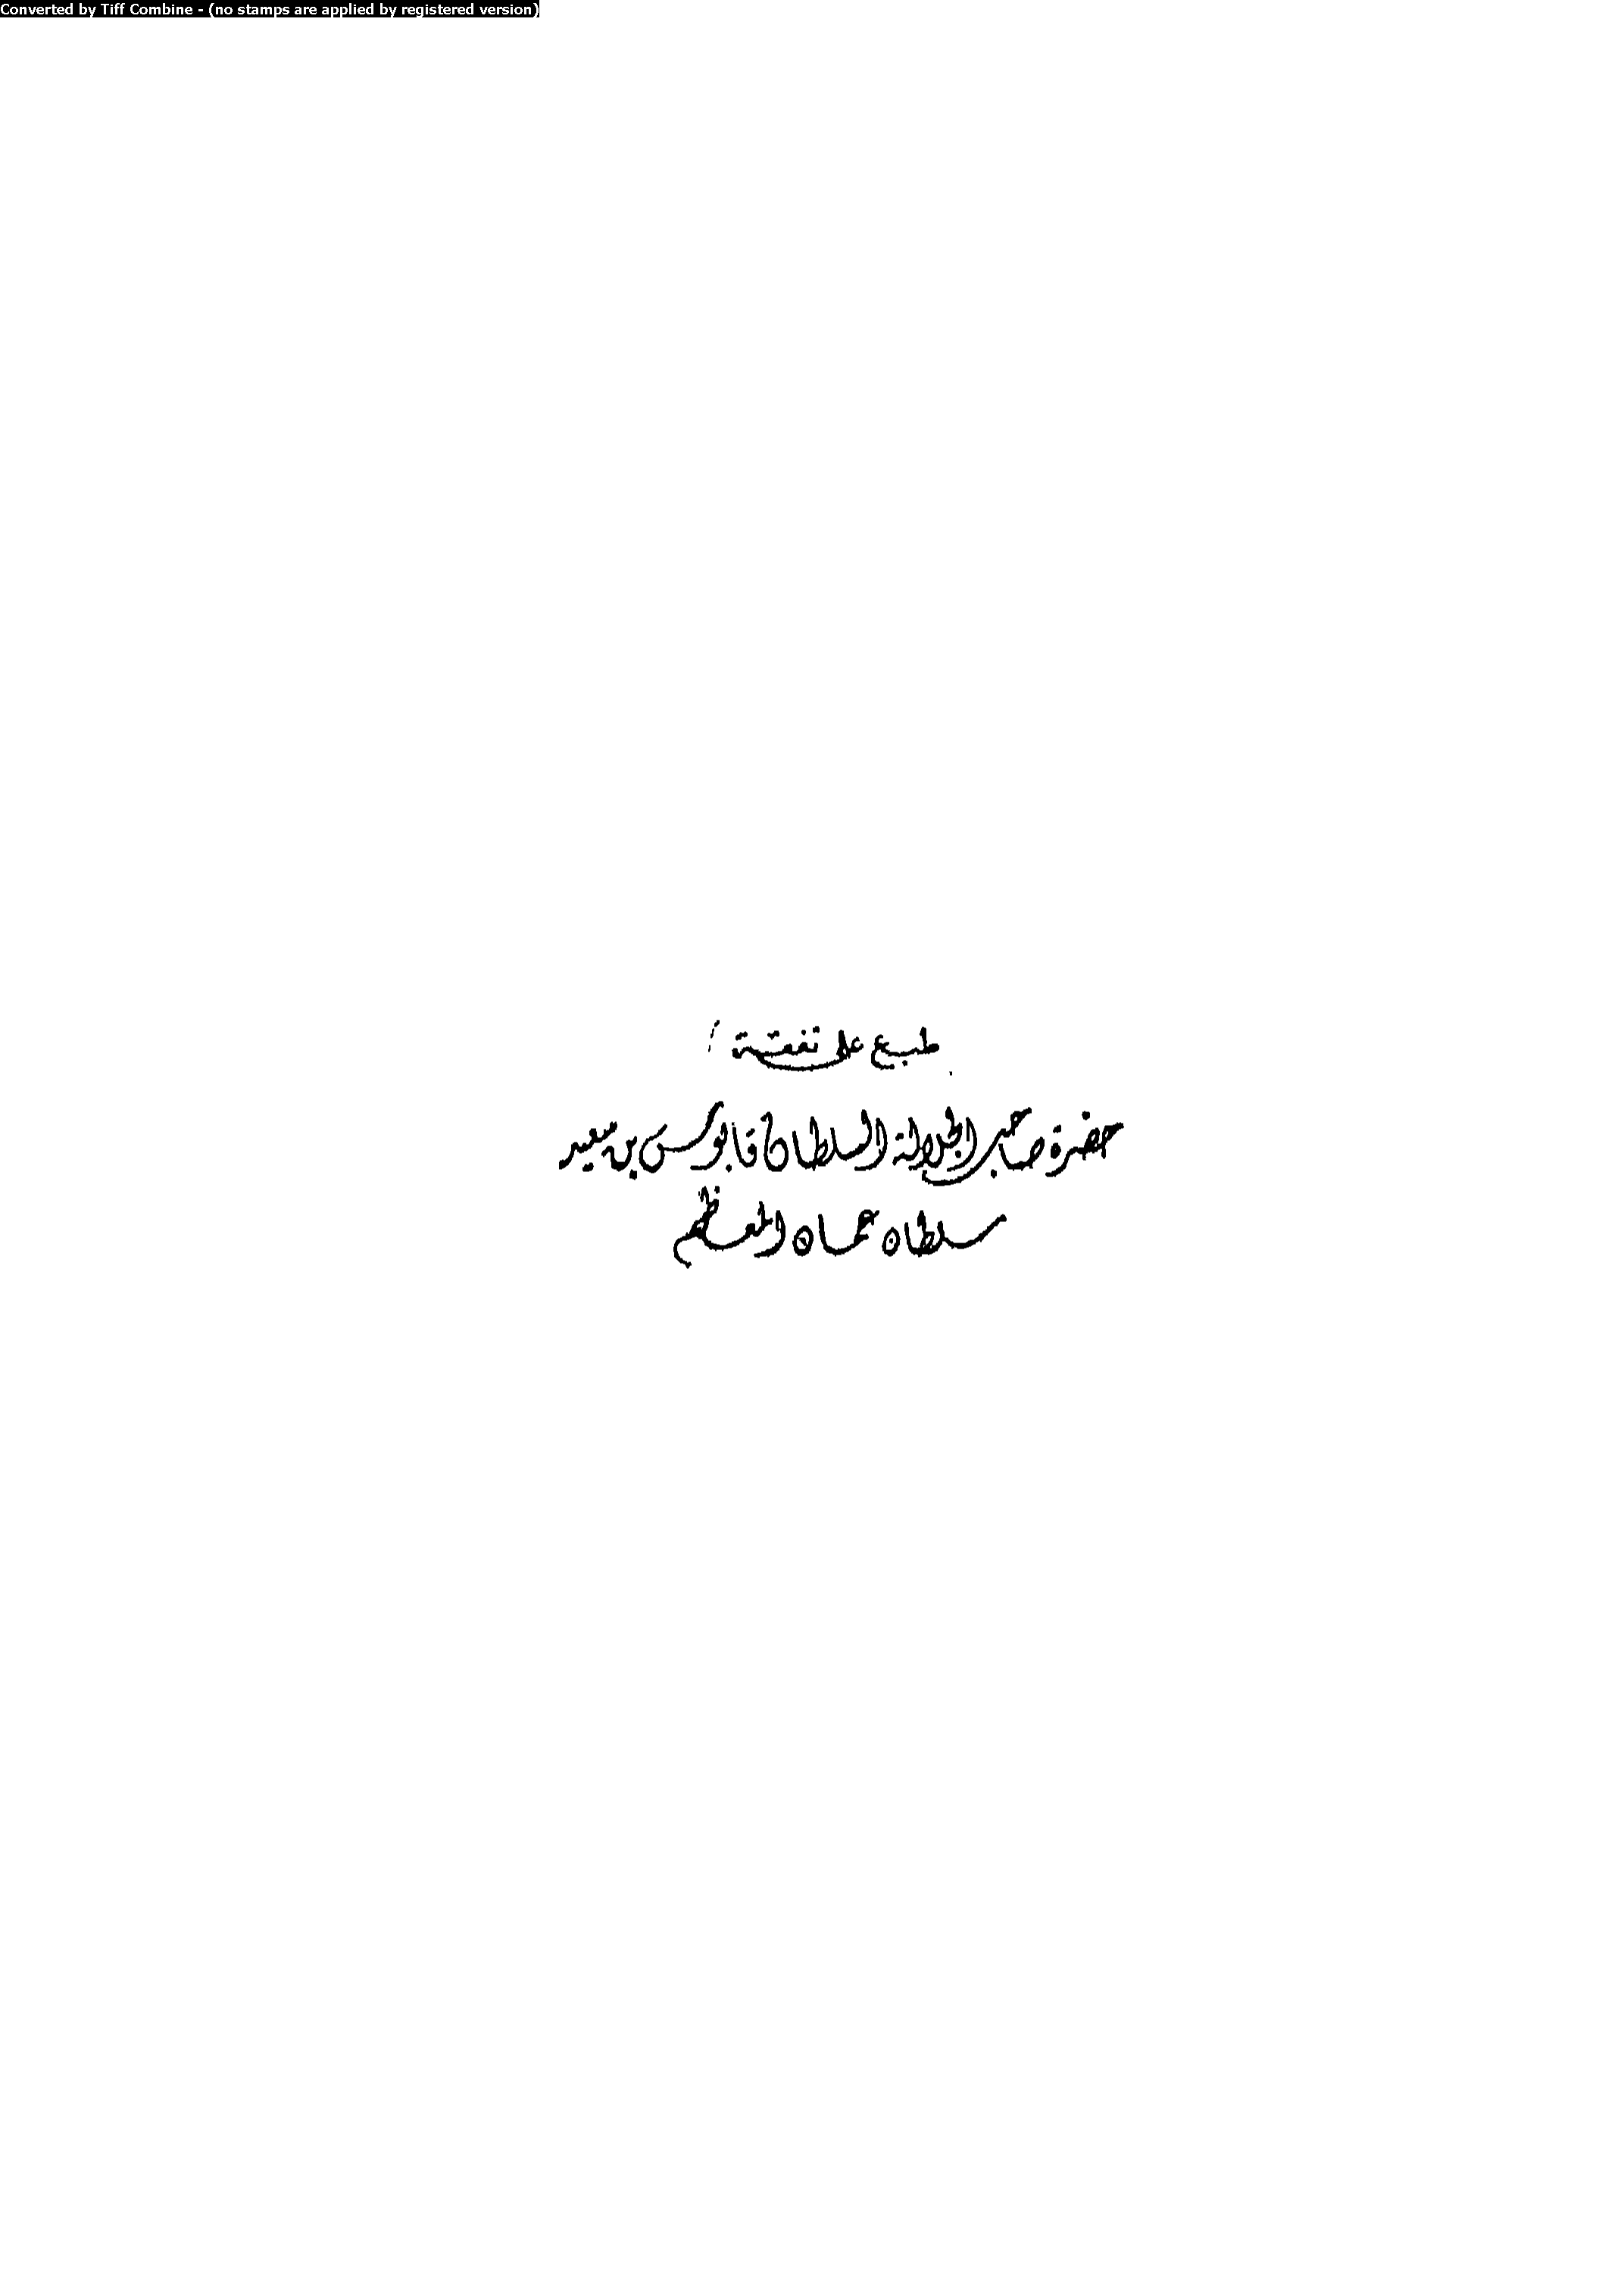 Converted by Tiff Combine - (no stamps are applied by registered version)
طبع على نفقة
حضرة صاحب الجلالة السلطان قابوس بن سعيد
سلطان عمان المعظم